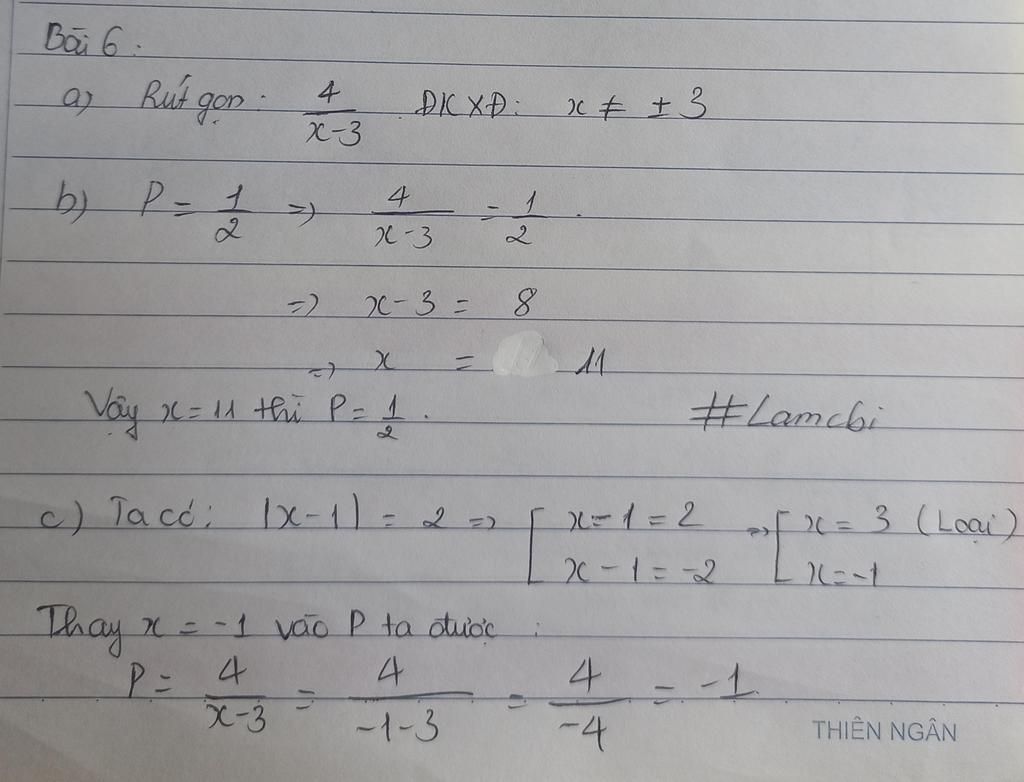 Bài 6:
a) Rút gọn: 4/(x-3). ĐKXĐ: x ≠ ± 3
b) P = 1/2 => 4/(x-3) = 1/2.
=> x - 3 = 8
=> x = 11
Vậy x = 11 thì P = 1/2.
#Lamcbi
c) Ta có: |x-1| = 2 => [ x-1 = 2 => [ x = 3 (Loại)
x - 1 = -2 x = -1
Thay x = -1 vào P ta được:
P = 4/(x-3) = 4/(-1-3) = 4/(-4) = -1.
THIÊN NGÂN